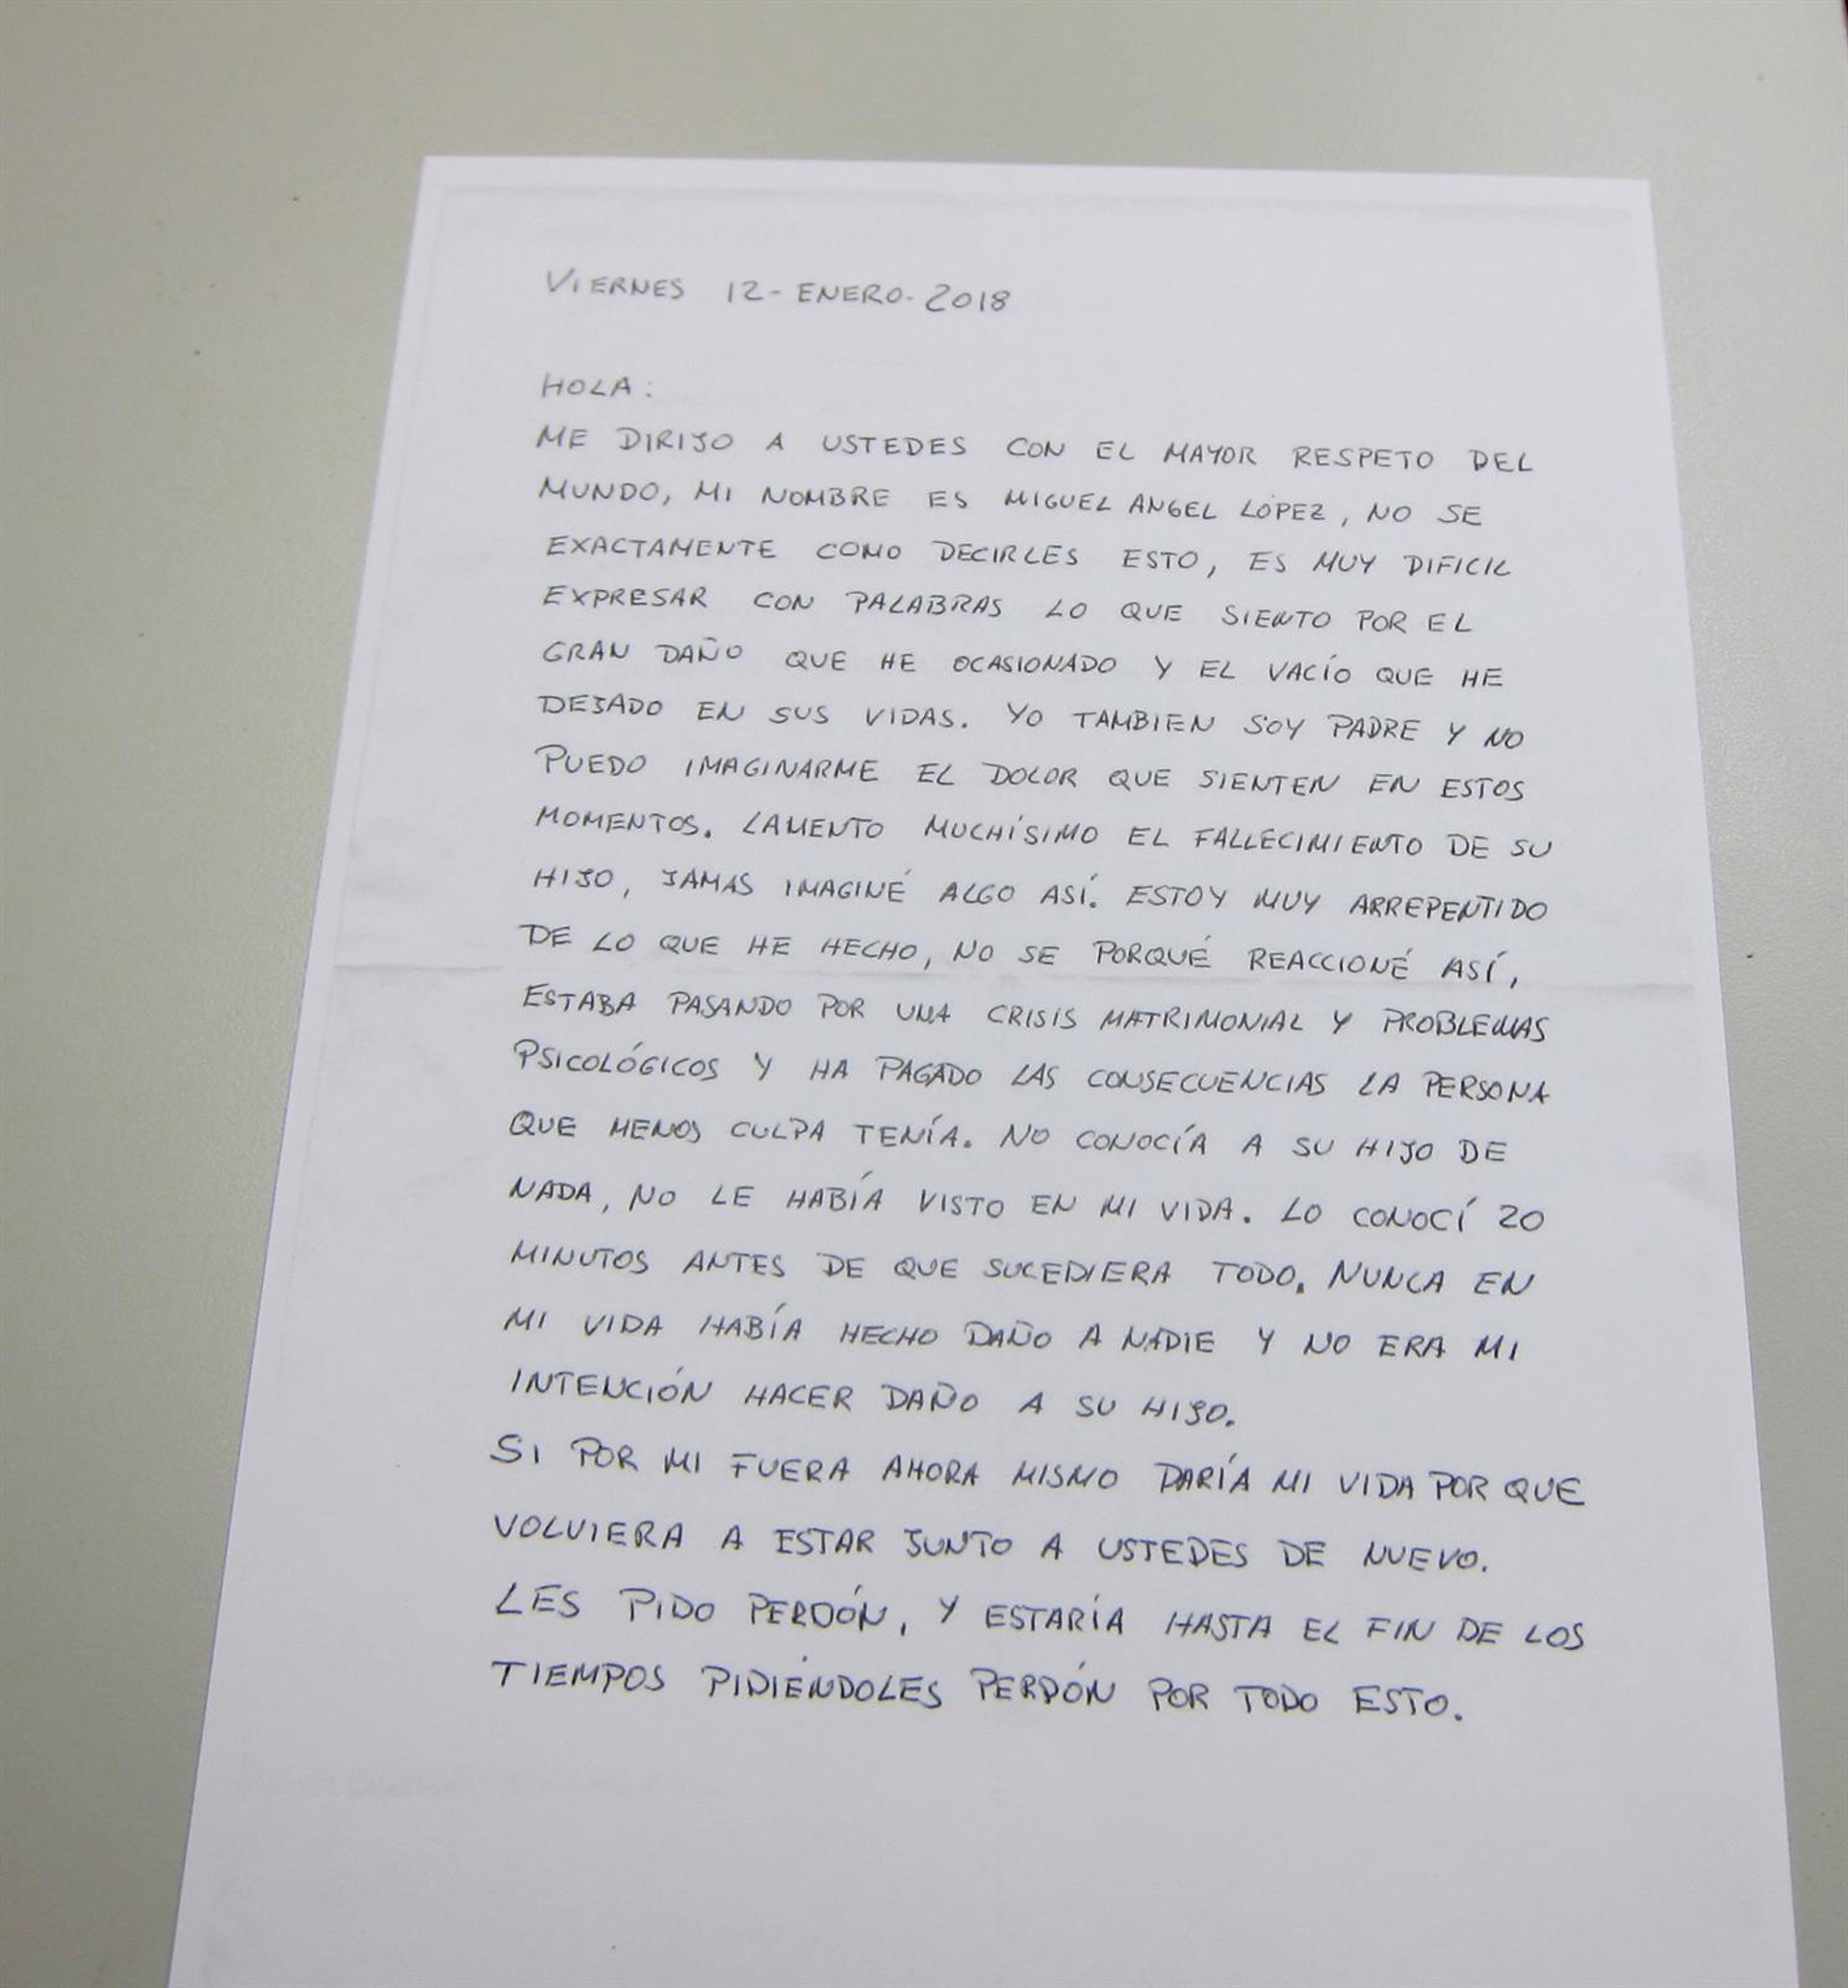 VIERNES 12-ENERO-2018
HOLA:
ME DIRIJO A USTEDES CON EL MAYOR RESPETO DEL
MUNDO, MI NOMBRE ES MIGUEL ANGEL LÓPEZ, NO SE
EXACTAMENTE COMO DECIRLES ESTO, ES MUY DIFICIL
EXPRESAR CON PALABRAS LO QUE SIENTO POR EL
GRAN DAÑO QUE HE OCASIONADO Y EL VACÍO QUE HE
DEJADO EN SUS VIDAS. YO TAMBIEN SOY PADRE Y NO
PUEDO IMAGINARME EL DOLOR QUE SIENTEN EN ESTOS
MOMENTOS. LAMENTO MUCHÍSIMO EL FALLECIMIENTO DE SU
HIJO, JAMAS IMAGINÉ ALGO ASÍ. ESTOY MUY ARREPENTIDO
DE LO QUE HE HECHO, NO SE PORQUÉ REACCIONÉ ASÍ,
ESTABA PASANDO POR UNA CRISIS MATRIMONIAL Y PROBLEMAS
PSICOLÓGICOS Y HA PAGADO LAS CONSECUENCIAS LA PERSONA
QUE MENOS CULPA TENÍA. NO CONOCÍA A SU HIJO DE
NADA, NO LE HABÍA VISTO EN MI VIDA. LO CONOCÍ 20
MINUTOS ANTES DE QUE SUCEDIERA TODO. NUNCA EN
MI VIDA HABÍA HECHO DAÑO A NADIE Y NO ERA MI
INTENCIÓN HACER DAÑO A SU HIJO.
SI POR MI FUERA AHORA MISMO DARÍA MI VIDA POR QUE
VOLVIERA A ESTAR JUNTO A USTEDES DE NUEVO.
LES PIDO PERDÓN, Y ESTARÍA HASTA EL FIN DE LOS
TIEMPOS PIDIÉNDOLES PERDÓN POR TODO ESTO.